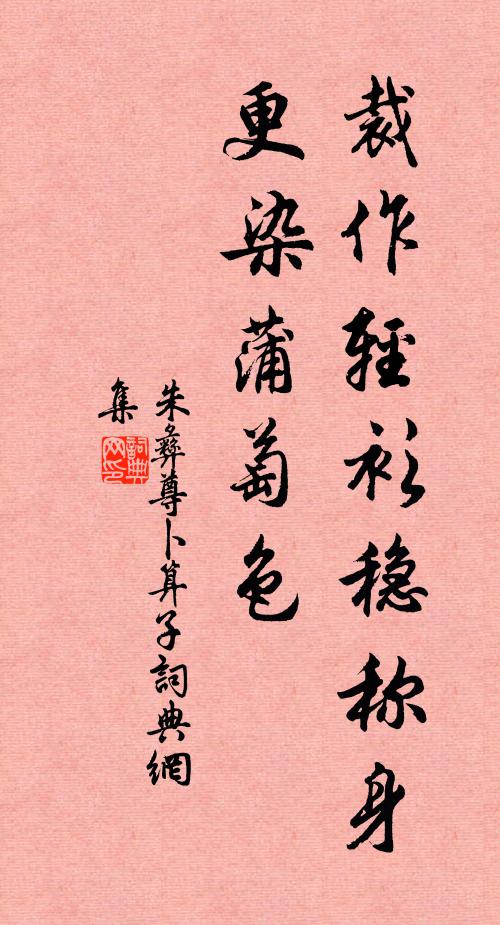 裁作輕衫稳称身
更染蒲萄色
朱彝尊卜算子詞典網
集
詞典網印